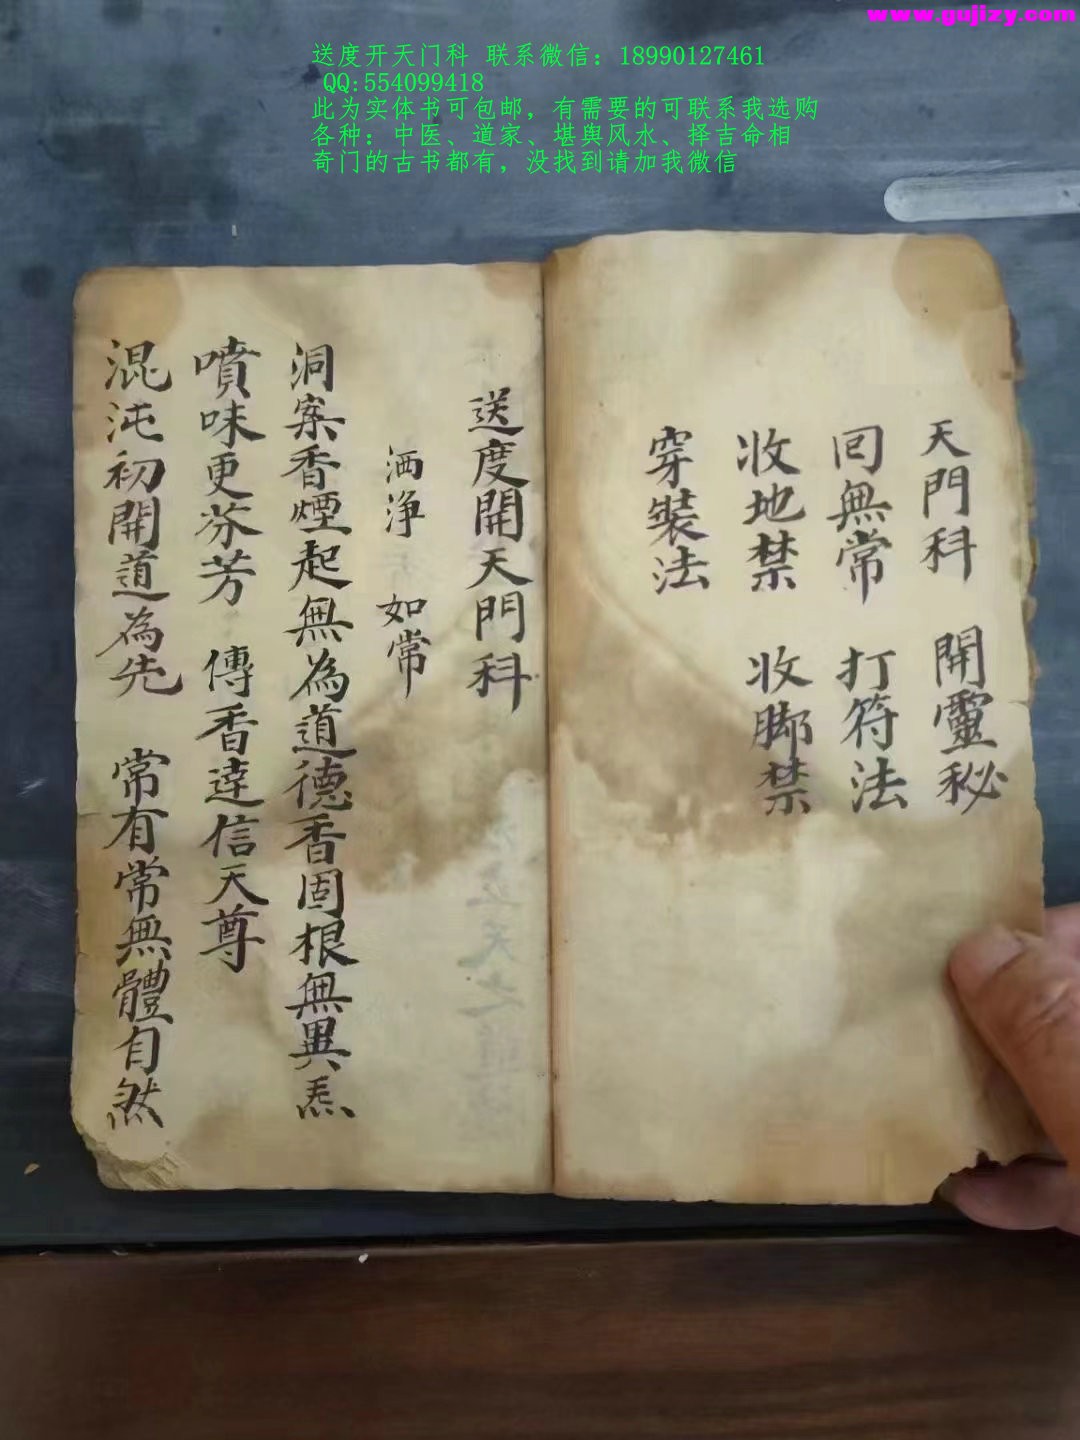 www.gujizy.com
送度开天门科 联系微信：18990127461
QQ:554099418
此为实体书可包邮，有需要的可联系我选购
各种：中医、道家、堪舆风水、择吉命相
奇门的古书都有，没找到请加我微信
天門科 開靈秘
囘無常 打符法
收地禁 收脚禁
穿裝法
送度開天門科
洒淨 如常
洞案香煙起無為道德香固根無異炁
噴味更芬芳 傳香達信天尊
混沌初開道為先 常有常無體自然